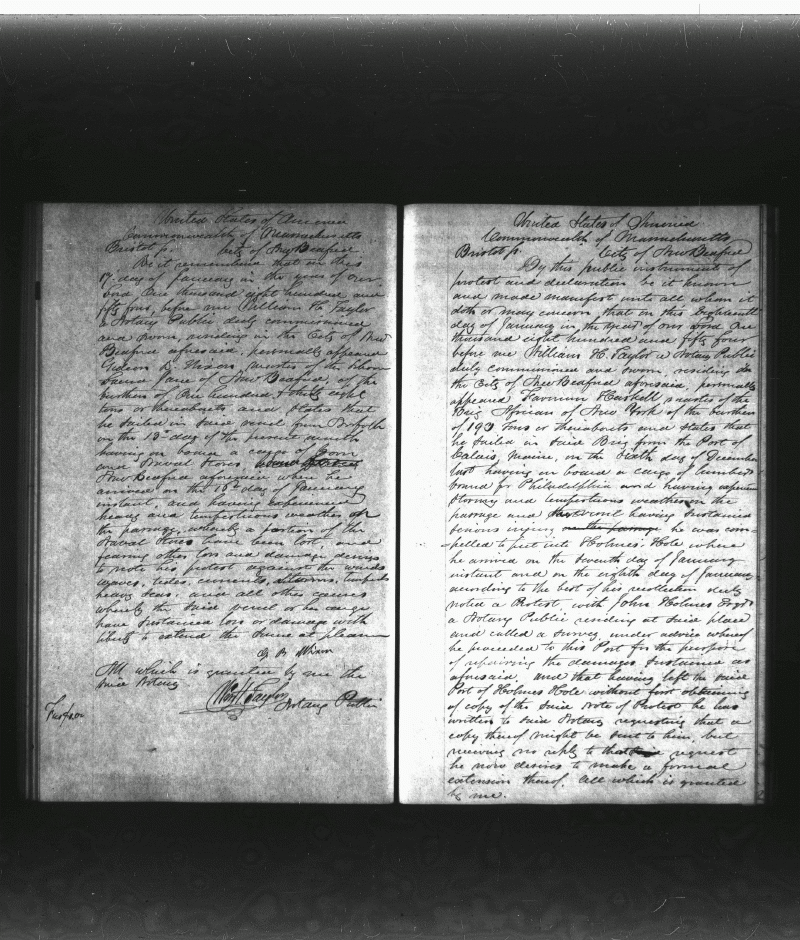 United States of America
Commonwealth of Massachusetts
Bristol ss. City of New Bedford
Be it remembered that on this
17. day of January in the year of our
Lord One thousand eight hundred and
fifty four, before me William H. Taylor
a Notary Public duly commissioned
and sworn, residing in the City of New
Bedford aforesaid, personally appeared
Gideon B. Nixon master of the
Jane of New Bedford, of the
burthen of One hundred & thirty eight
tons or thereabouts and States that
he sailed in said vessel from Norfolk
on the day of the present month
having on board a cargo of Corn
and Naval Stores,
New Bedford aforesaid where he
arrived on the day of January
instant, and having experienced
heavy and tempestuous weather on
the passage, whereby a portion of the
Naval Stores have been lost, and
fearing other loss and damage, desires
to note his protest against the winds
waves, tides, currents, storms, tempests
heavy seas, and all other causes
whereby the said vessel or her cargo
have sustained loss or damage with
liberty to extend the same at pleasure
G. B. Nixon
All which is granted by me the
said Notary
Wm H. Taylor Notary Public
United States of America
Commonwealth of Massachusetts
Bristol ss. City of New Bedford
By this public instrument of
protest and declaration be it known
and made manifest unto all whom it
doth or may concern that on this eighteenth
day of January in the year of our Lord One
thousand eight hundred and fifty four
before me William H. Taylor a Notary Public
duly commissioned and sworn, residing in
the City of New Bedford aforesaid, personally
appeared Haskell master of the
Brig African of New York of the burthen
of 193 Tons or thereabouts and States that
he sailed in said Brig from the Port of
Calais, Maine, on the day of December
last having on board a cargo of lumber
bound for Philadelphia and having experienced
stormy and tempestuous weather on the
passage and having sustained
serious injury on the passage he was com-
pelled to put into Holmes' Hole where
he arrived on the seventh day of January
instant and on the eighth day of January
according to the best of his recollection duly
noted a Protest, with John Holmes Esqr
a Notary Public residing at said place
and called a survey, under advice whereof
he proceeded to this Port for the purpose
of repairing the damages sustained as
aforesaid, and that having left the said
Port of Holmes Hole without first obtaining
a copy of the said note of Protest he has
written to said Notary requesting that a
copy thereof might be sent to him, but
receiving no reply to request
he now desires to make a formal
extension thereof. All which is granted
by me.